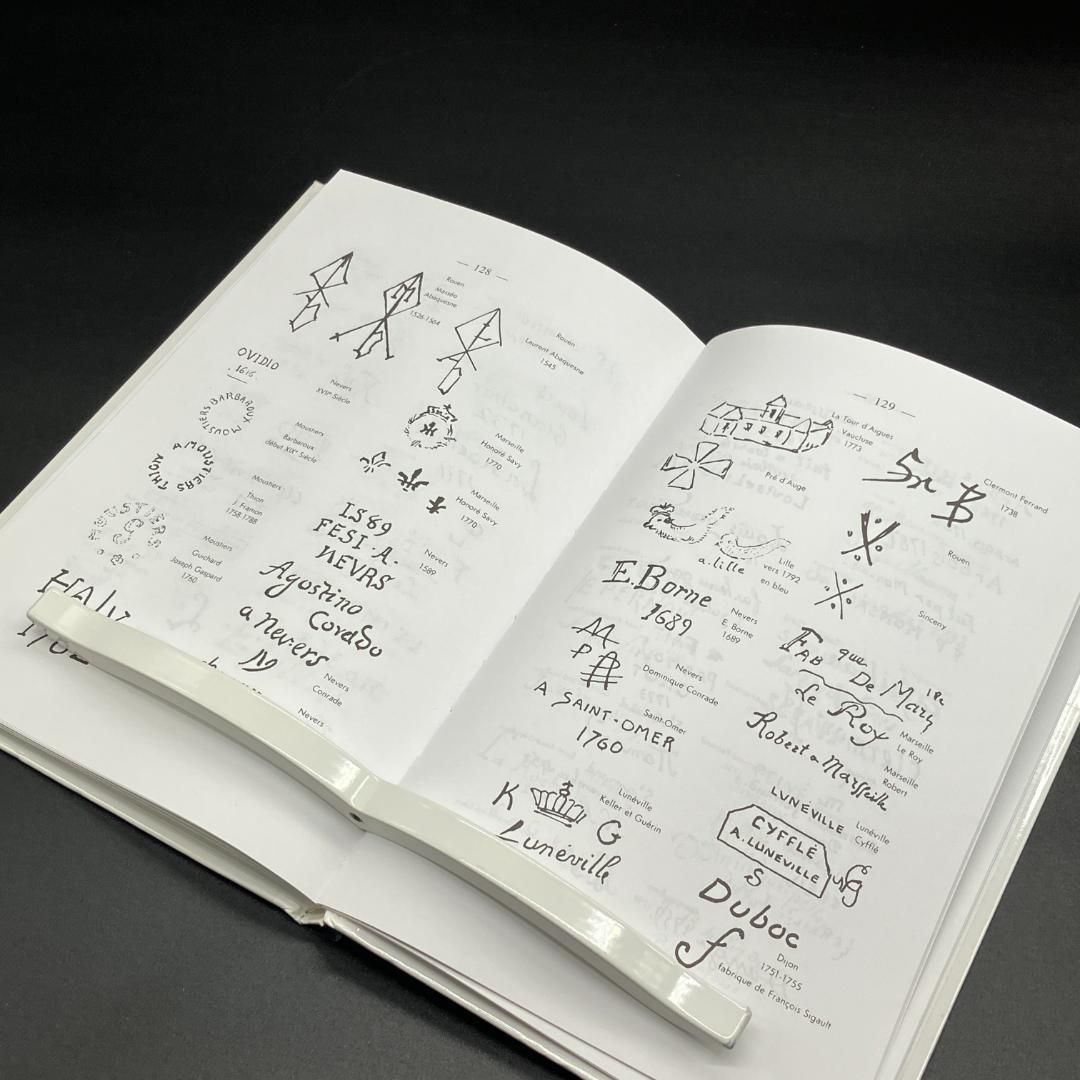 — 128 —
Rouen
Masséo
Abaquesne
1526-1564
Rouen
Laurent Abaquesne
1545
OVIDIO
1616
Nevers
XVIIe Siècle
BARBAROUX MOUSTIERS
Moustiers
Barbaroux
début XIXe Siècle
Marseille
Honoré Savy
1770
THION A MOUSTIERS
Moustiers
Thion
J. Framon
1758-1788
Marseille
Honoré Savy
1770
Moustiers
Guichard
Joseph Gaspard
1760
1589
FESI A.
NEVRS
Nevers
1589
Agostino
Corado
a nevers
Nevers
Conrade
Nevers
— 129 —
La Tour d'Aigues
Vaucluse
1773
Clermont Ferrand
1738
Pré d'Auge
Rouen
a. lille
Lille
vers 1792
en bleu
Sinceny
E. Borne
1689
Nevers
E. Borne
1689
FAB que
De Mar
Le Roy
Marseille
Le Roy
Nevers
Dominique Conrade
A SAINT-OMER
1760
Saint-Omer
Robert a Marseille
Marseille
Robert
K G
Lunéville
Lunéville
Keller et Guérin
LUNÉVILLE
CYFFLÉ
A. LUNEVILLE
Lunéville
Cyfflé
S
Duboc
f
Dijon
1751-1755
fabrique de François Sigault